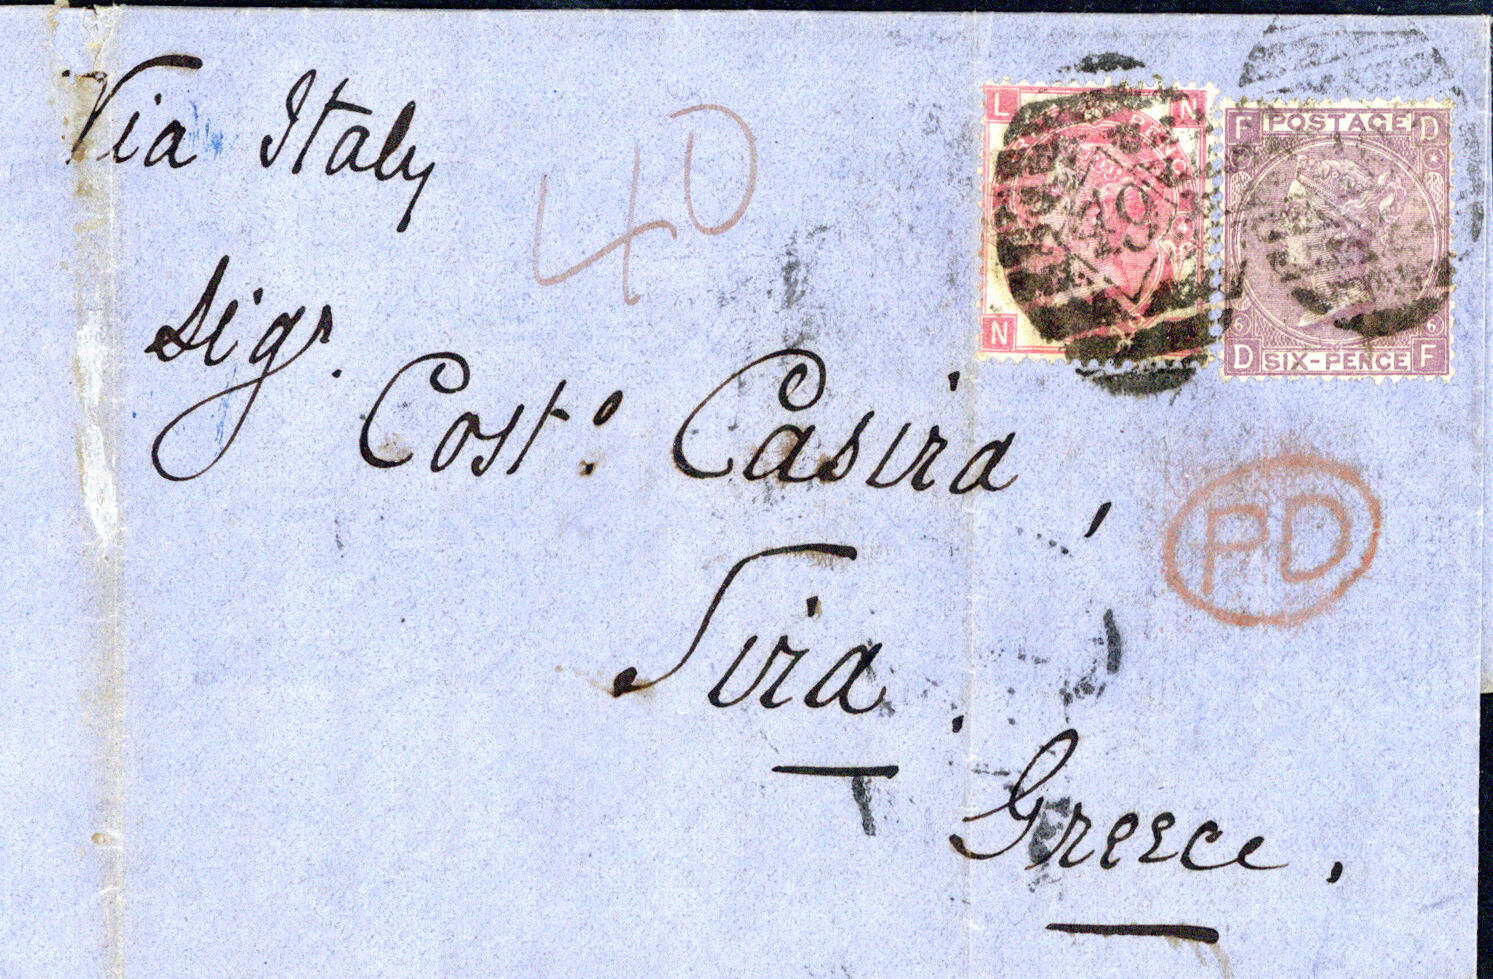 Via Italy
40
L N
N
49
F POSTAGE D
6 6
D SIX-PENCE F
Sigr.
Costo. Casira,
PD
Siria.
Greece,